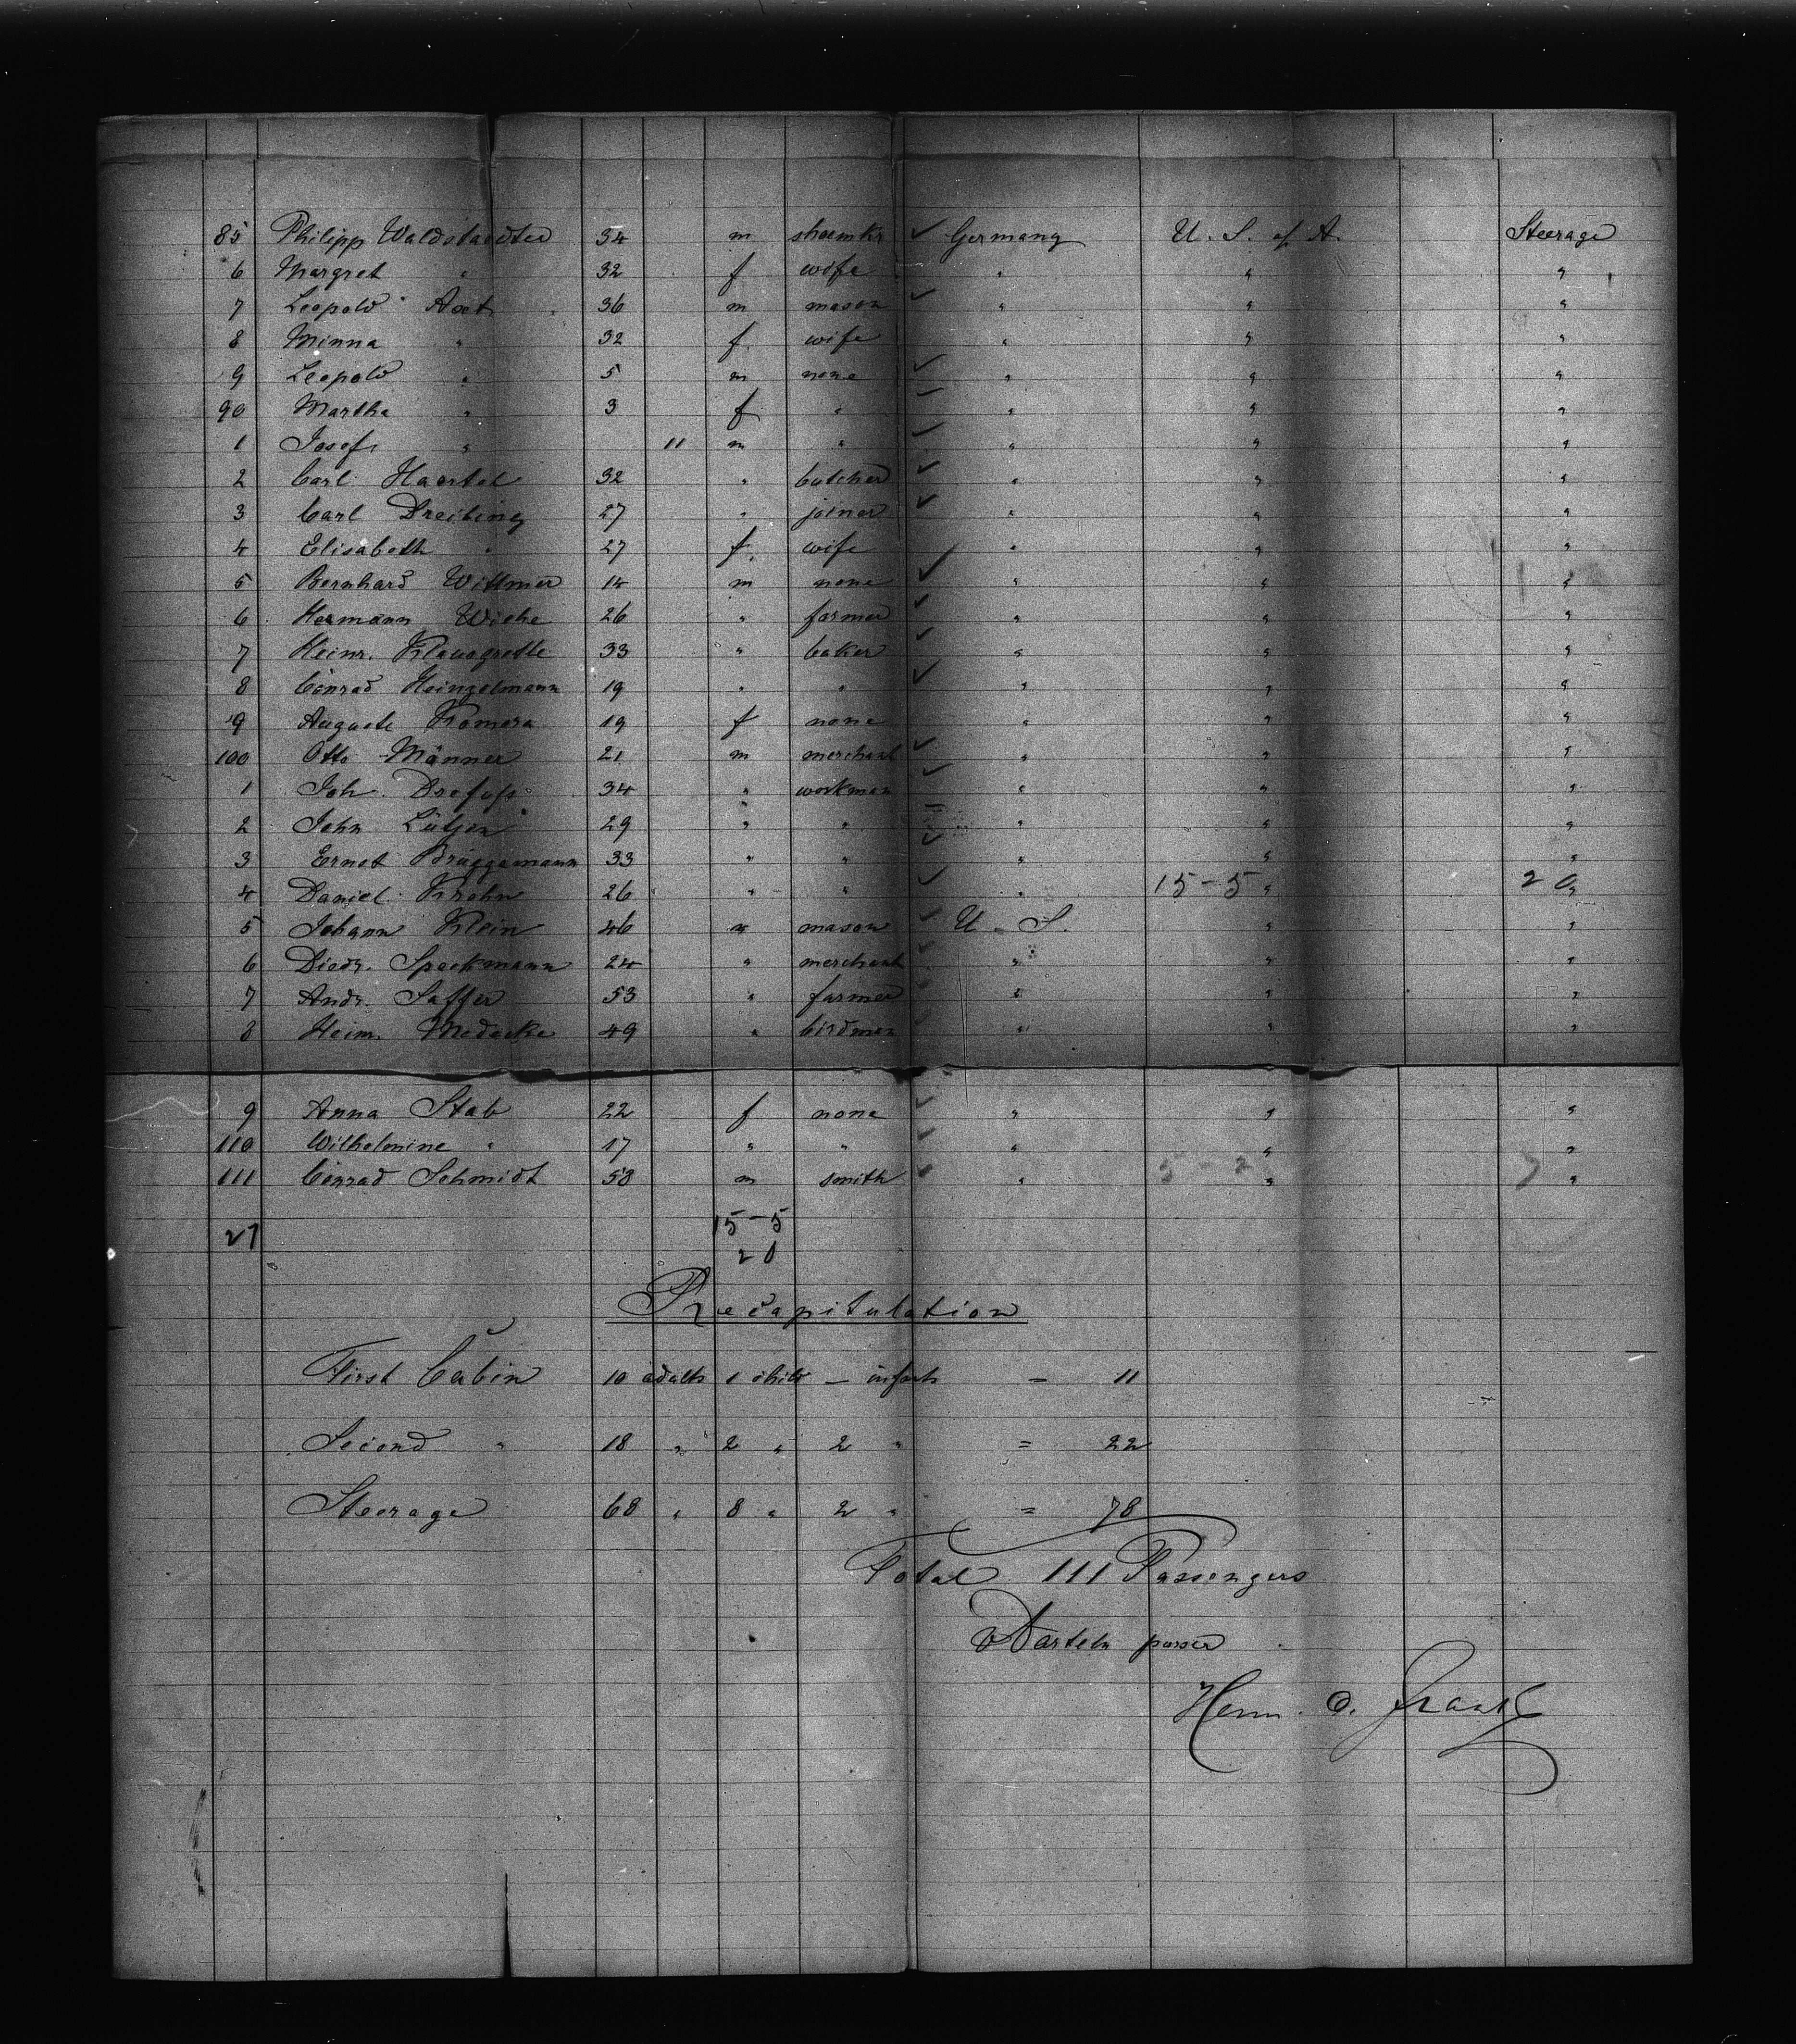 85 Philipp Waldstaedter 34 m shoemkr ✓ Germany U. S. of A. Steerage
6 Margret " 32 f wife " " "
7 Leopold Axt 36 m mason ✓ " " "
8 Minna " 32 f wife " " "
9 Leopold " 5 m none ✓ " " "
90 Martha " 3 f " ✓ " " "
1 Josef " 11 m " ✓ " " "
2 Carl Haertel 32 " butcher ✓ " " "
3 Carl Dreibing 27 " joiner ✓ " " "
4 Elisabeth " 27 f wife " " "
5 Bernhard Wittmer 14 m none ✓ " " "
6 Hermann Wiehe 26 " farmer ✓ " " "
7 Heinr. 33 " baker ✓ " " "
8 Conrad Heinzelmann 19 " " ✓ " " "
9 Auguste Komora 19 f none " " "
100 Otto Männer 21 m merchant ✓ " " "
1 Joh. Drefuss 34 " workman ✓ " " "
2 John Lütjen 29 " " " " "
3 Ernst Brüggemann 33 " " ✓ " " "
4 Daniel Krohn 26 " " ✓ " 15-5 " 20 "
5 Johann Klein 46 " mason ✓ U. S. " "
6 Diedr. Speckmann 24 " merchant " " "
7 Andr. Saffer 53 " farmer " " "
8 Heinr. Medecke 49 " birdman " " "
9 Anna Stab 22 f none ✓ " " "
110 Wilhelmine " 17 " " ✓ " " "
111 Conrad Schmidt 53 m smith ✓ " 5-2 " 7 "
27 15-5
20
Recapitulation
First Cabin 10 adults 1 child — infants = 11
Second " 18 " 2 " 2 " = 22
Steerage 68 " 8 " 2 " = 78
Total 111 Passengers
purser
Herm. O.